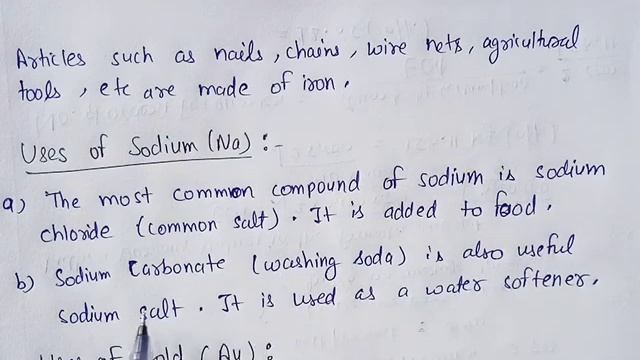 Articles such as nails, chains, wire nets, agricultural
tools, etc are made of iron.
Uses of Sodium (Na) :-
a) The most common compound of sodium is sodium
chloride (common salt). It is added to food.
b) Sodium Carbonate (washing soda) is also useful
sodium salt. It is used as a water softener.
(Au) :